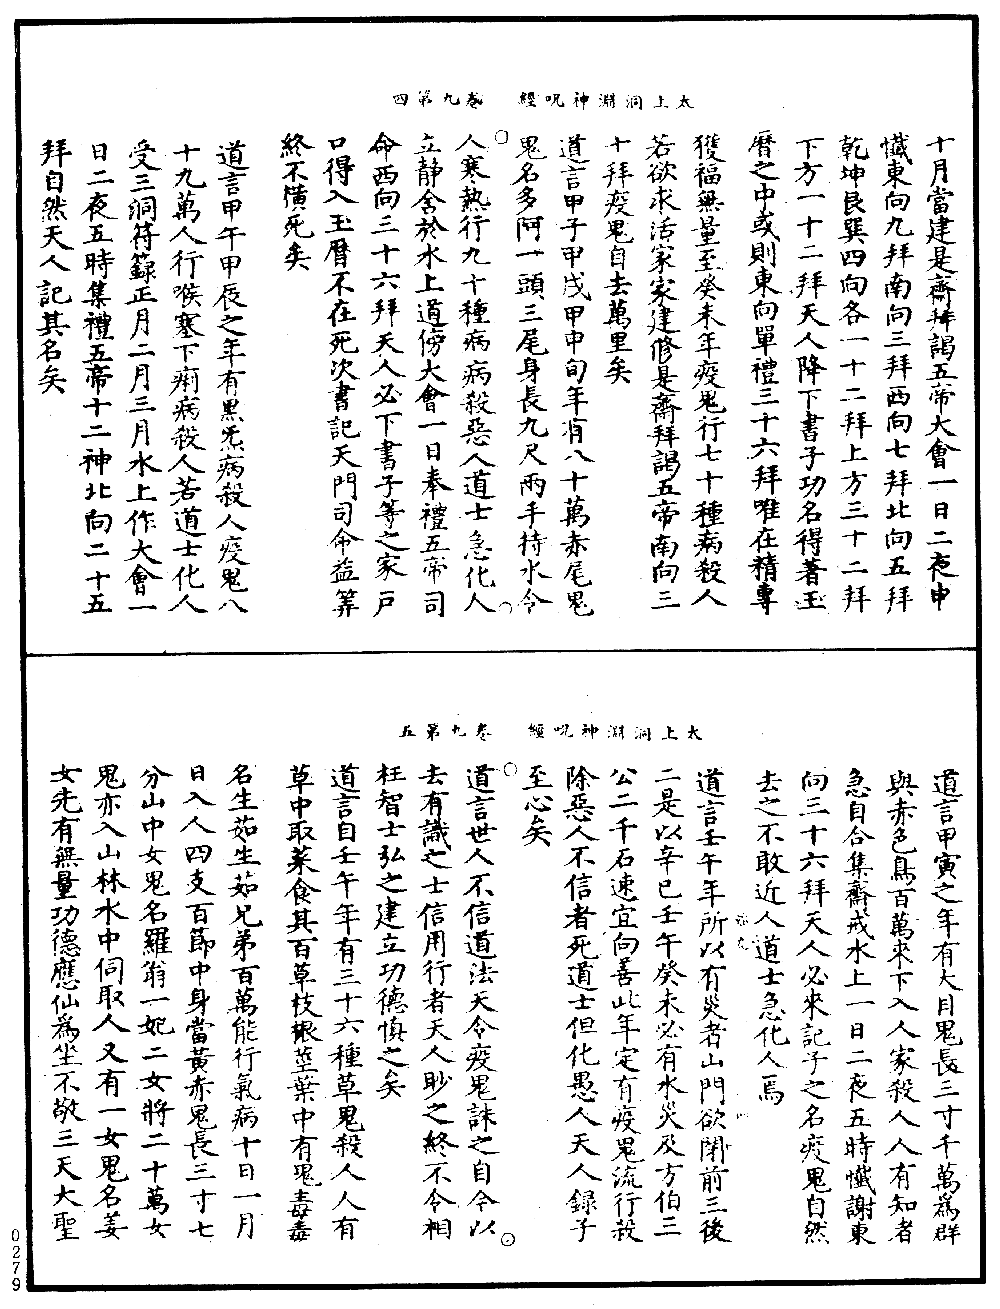 太上洞淵神呪經　卷九第四
十月當建是齋拜謁五帝大會一日二夜申
懺東向九拜南向三拜西向七拜北向五拜
乾坤艮巽四向各一十二拜上方三十二拜
下方一十二拜天人降下書子功名得著玉
曆之中或則東向單禮三十六拜唯在精專
獲福無量至癸未年疫鬼行七十種病殺人
若欲求活家家建修是齋拜謁五帝南向三
十拜疫鬼自去萬里矣
道言甲子甲戌甲申旬年有八十萬赤尾鬼
鬼名多阿一頭三尾身長九尺兩手持水令
人寒熱行九十種病病殺惡人道士急化人
立靜舍於水上道傍大會一日奉禮五帝司
命西向三十六拜天人必下書子等之家戶
口得入玉曆不在死次書記天門司命益筭
終不橫死矣
道言甲午甲辰之年有黑炁病殺人疫鬼八
十九萬人行喉塞下痢病殺人若道士化人
受三洞符籙正月二月三月水上作大會一
日二夜五時集禮五帝十二神北向二十五
拜自然天人記其名矣
太上洞淵神呪經　卷九第五
道言甲寅之年有大目鬼長三寸千萬為群
與赤色鳥百萬來下入人家殺人人有知者
急自合集齋戒水上一日二夜五時懺謝東
向三十六拜天人必來記子之名疫鬼自然
去之不敢近人道士急化人焉
道言壬午年所以有災者山門欲閉前三後
二是以辛巳壬午癸未必有水災及方伯三
公二千石速宜向善此年定有疫鬼流行殺
除惡人不信者死道士但化愚人天人錄子
至心矣
道言世人不信道法天令疫鬼誅之自今以
去有識之士信用行者天人眇之終不令相
枉智士弘之建立功德慎之矣
道言自壬午年有三十六種草鬼殺人人有
草中取菜食其百草枝根莖葉中有鬼毒毒
名生茹生茹兄弟百萬能行氣病十日一月
日入人四支百節中身當黃赤鬼長三寸七
分山中女鬼名羅翁一妃二女將二十萬女
鬼亦入山林水中伺取人又有一女鬼名姜
女先有無量功德應仙為坐不敬三天大聖
0279